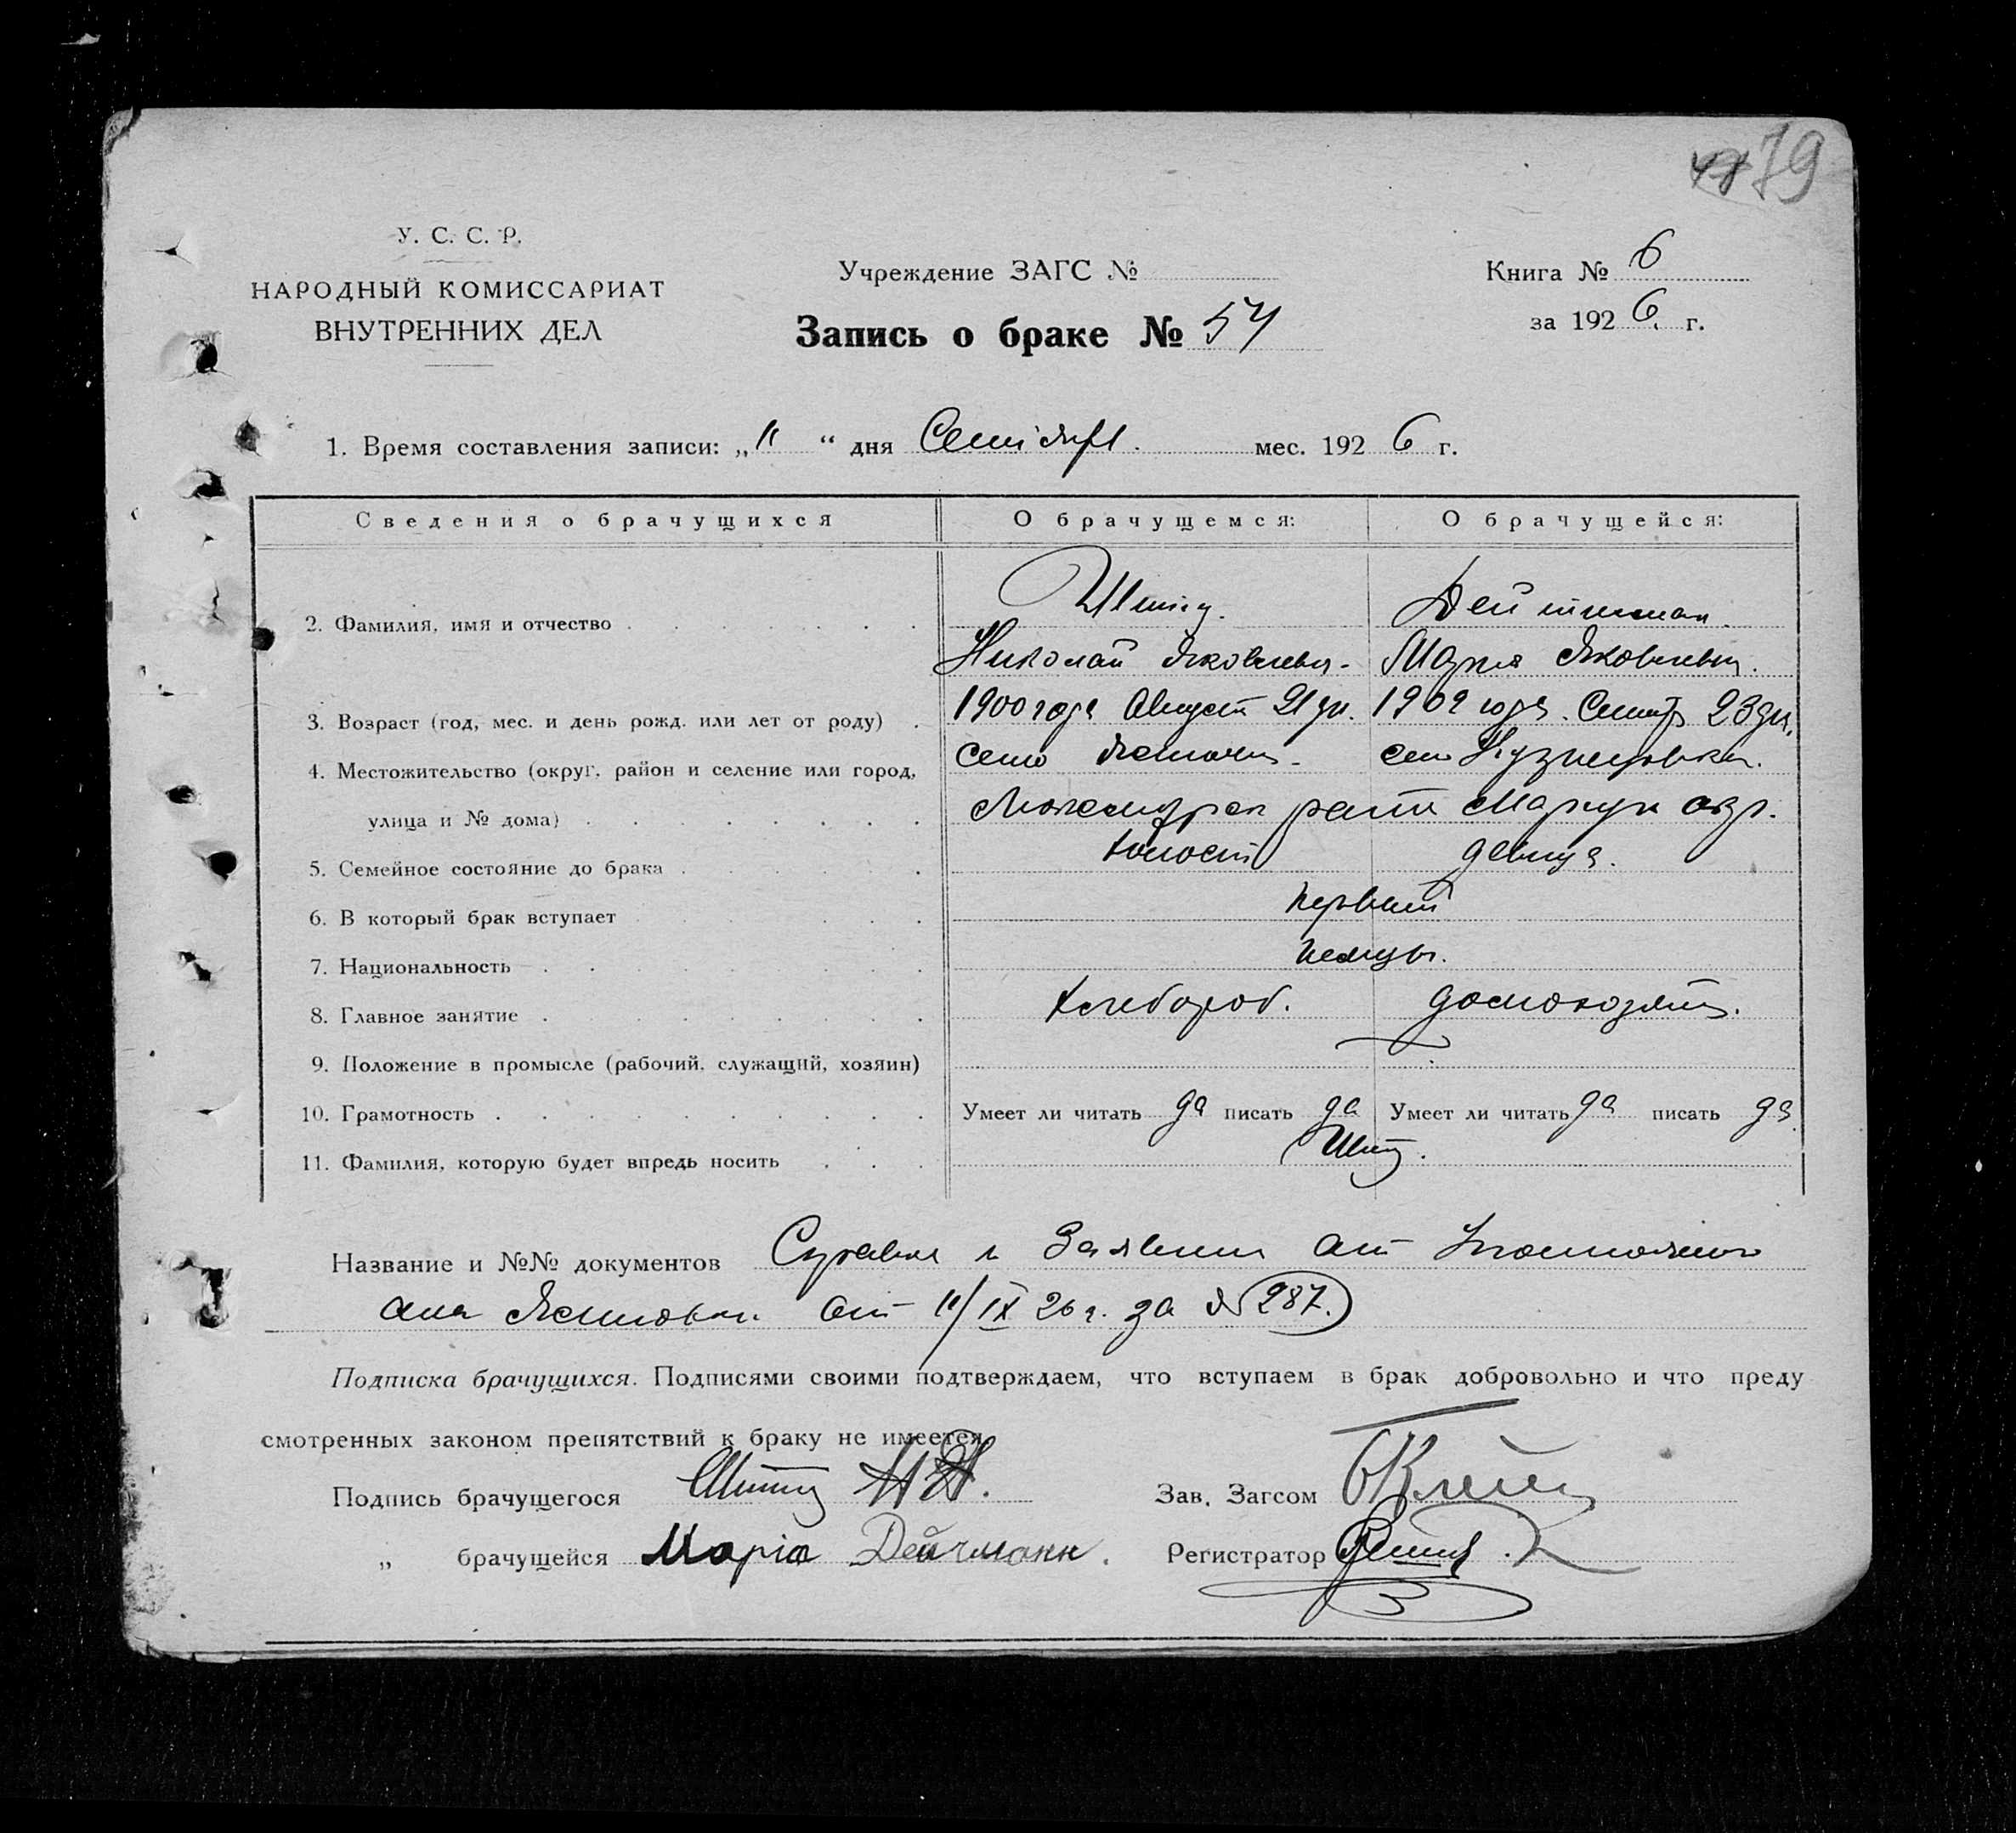 79
У. С. С. Р.
НАРОДНЫЙ КОМИССАРИАТ
ВНУТРЕННИХ ДЕЛ
Учреждение ЗАГС №
Запись о браке № 54
Книга № 6
за 1926. г.
1. Время составления записи: „11 “ дня Сентября. мес. 1926 г.
Сведения о брачущихся О брачущемся: О брачущейся:
2. Фамилия, имя и отчество
Николай Яковлевич. Мария Яковлевна.
3. Возраст (год, мес. и день рожд. или лет от роду) 1900 года Август 21 дн. 1902 года. Сентяб 23 дня.
4. Местожительство (округ, район и селение или город, село село Кузнецовка.
улица и № дома)
5. Семейное состояние до брака холост девица.
6. В который брак вступает первый
7. Национальность немцы.
8. Главное занятие Хлебороб. домохозяйк.
9. Положение в промысле (рабочий, служащий, хозяин)
10. Грамотность Умеет ли читать да писать да Умеет ли читать да писать да
11. Фамилия, которую будет впредь носить
Название и №№ документов Справки и Заявлени от
от 11/IX 26 г. за № 287.
Подписка брачущихся. Подписями своими подтверждаем, что вступаем в брак добровольно и что преду
смотренных законом препятствий к браку не имеется.
Подпись брачущегося
Зав. Загсом
„ брачущейся Марія Дейчманн.
Регистратор